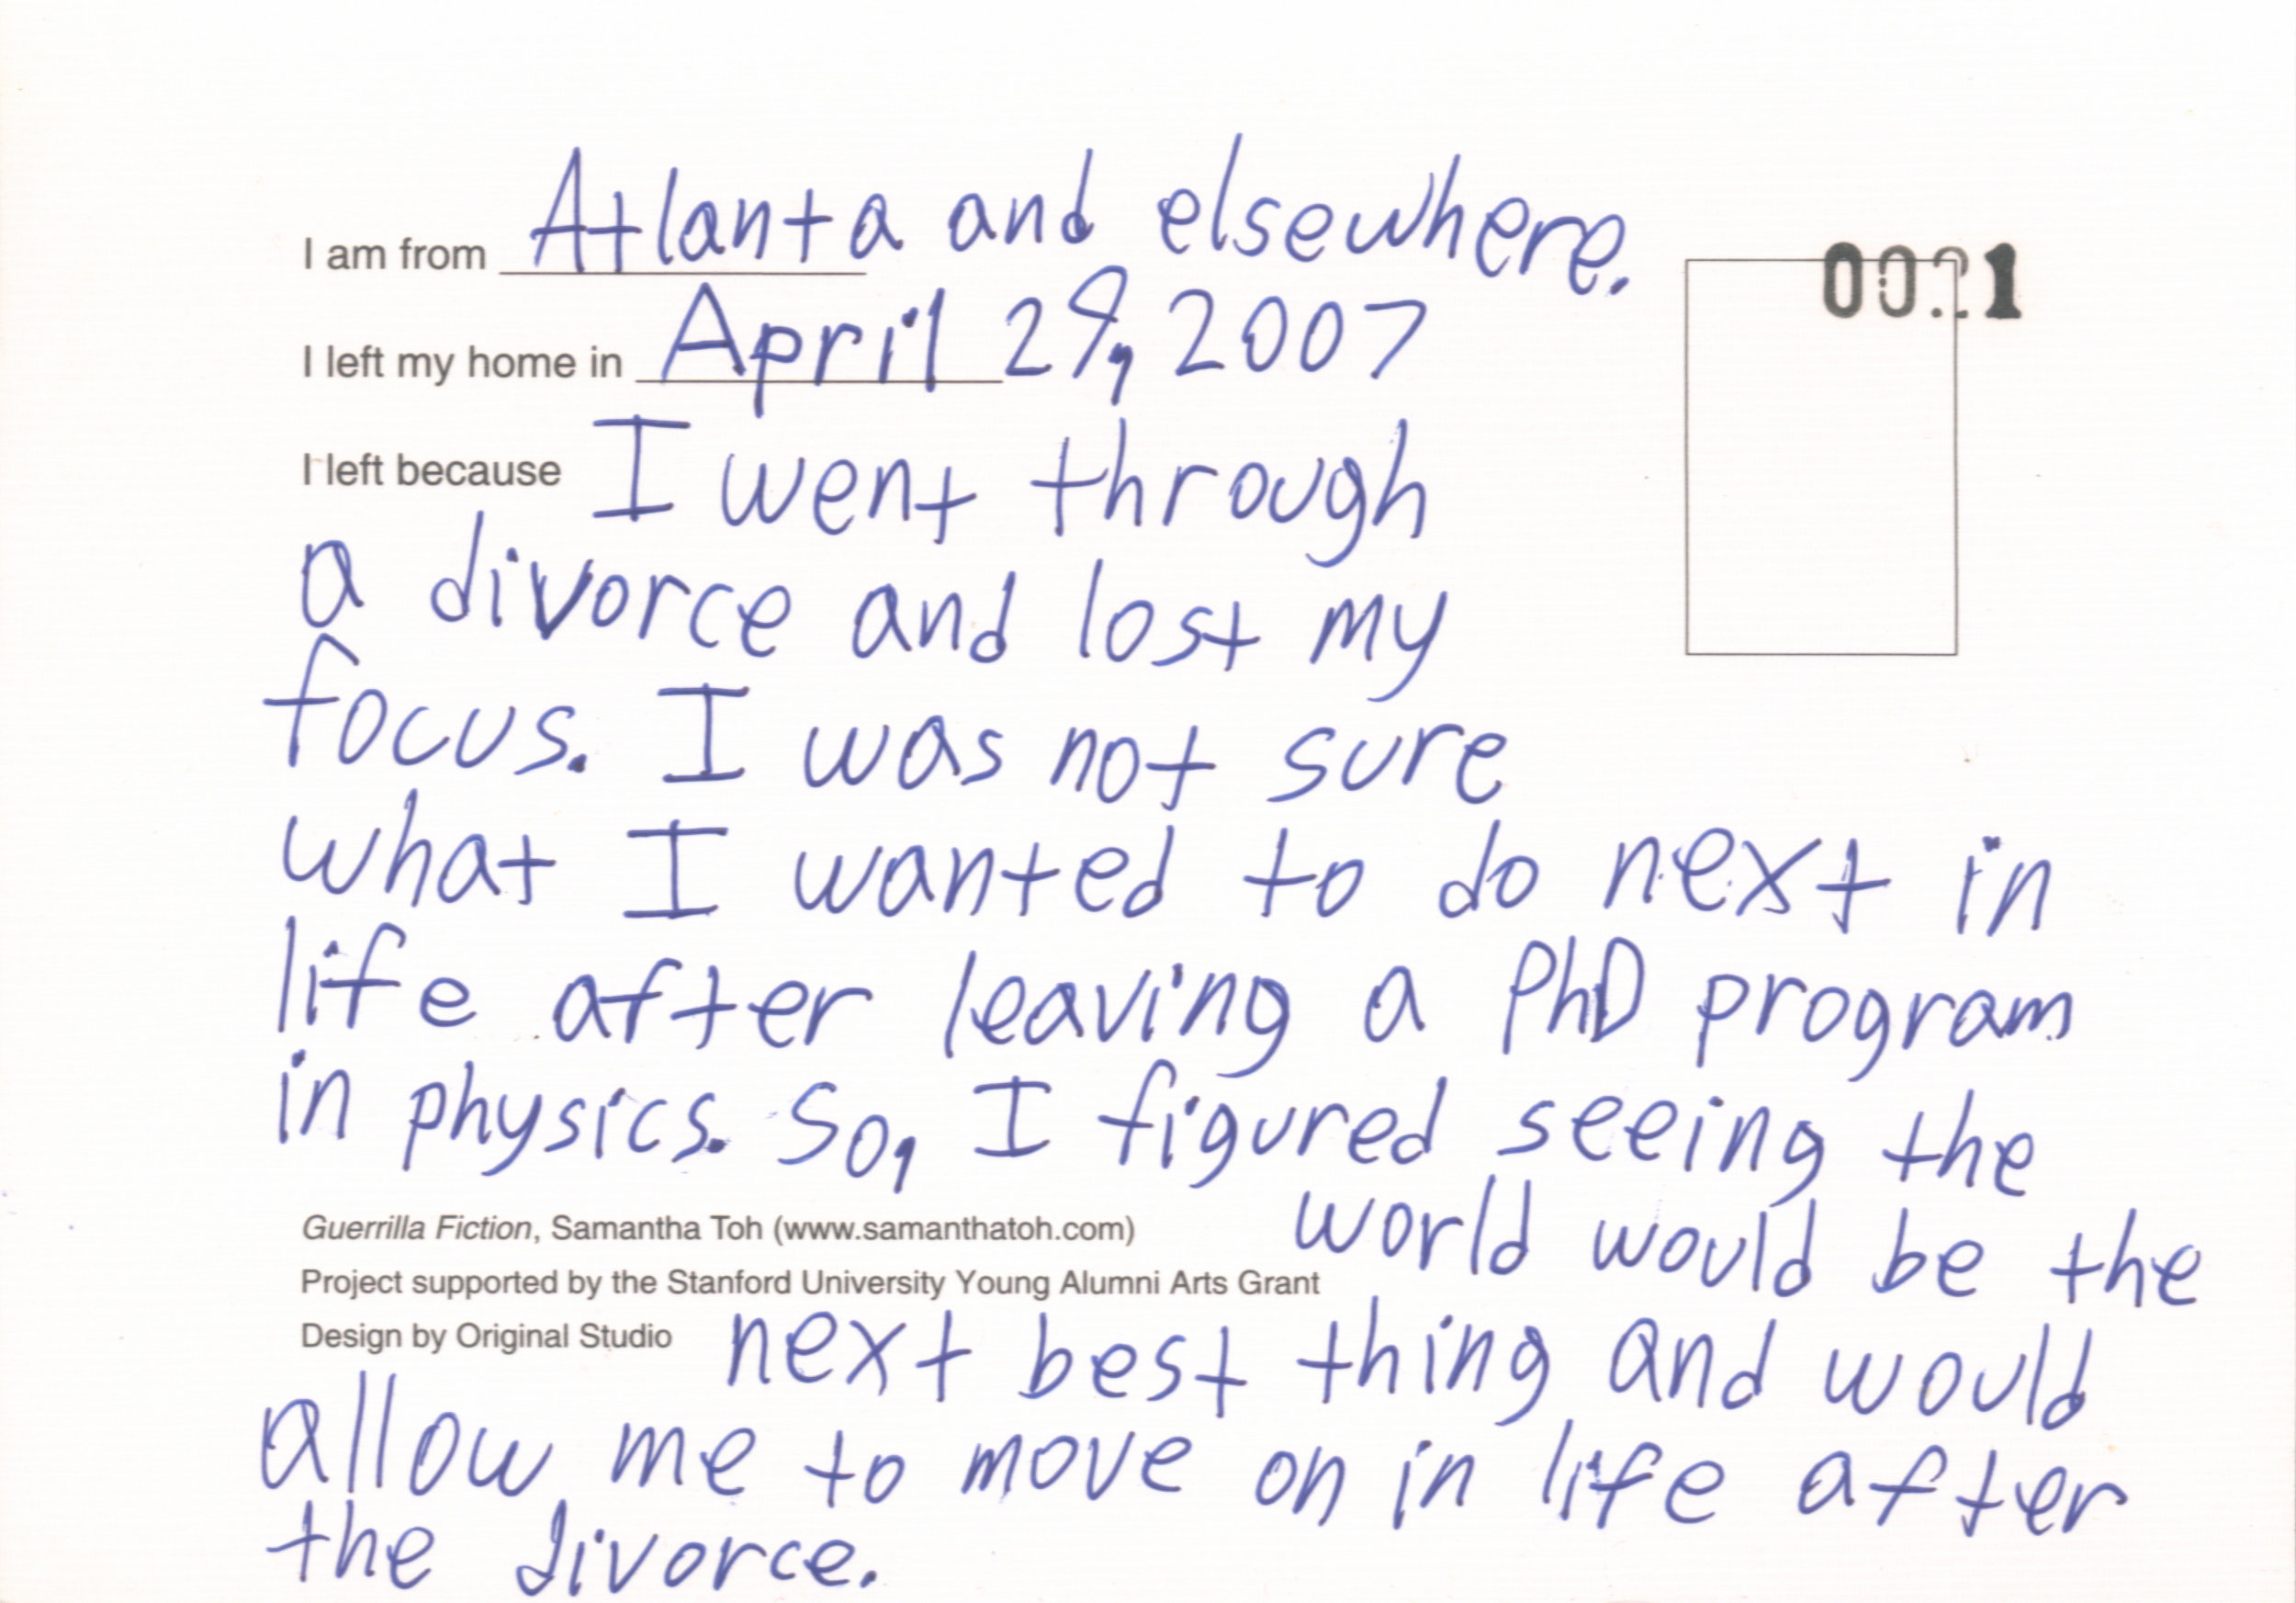 I am from Atlanta and elsewhere.
0021
I left my home in April 29, 2007
I left because I went through
a divorce and lost my
focus. I was not sure
what I wanted to do next in
life after leaving a PhD program
in physics. So, I figured seeing the
world would be the
Guerrilla Fiction, Samantha Toh (www.samanthatoh.com)
Project supported by the Stanford University Young Alumni Arts Grant
Design by Original Studio
next best thing and would
allow me to move on in life after
the divorce.